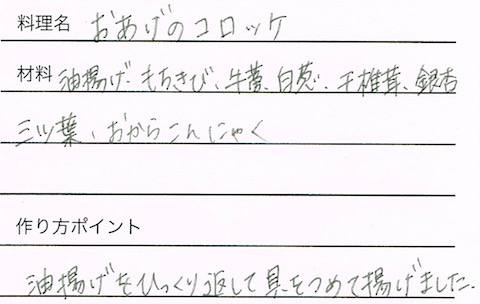 料理名 おあげのコロッケ
材料 油揚げ、もちきび、牛蒡、白葱、干椎茸、銀杏
三ツ葉、おからこんにゃく
作り方ポイント
油揚げをひっくり返して具をつめて揚げました。